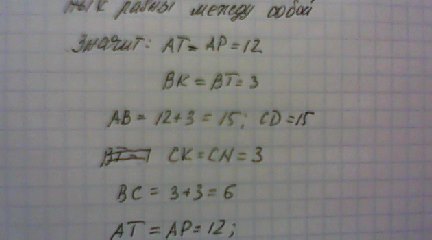 ных равны между собой
Значит: AT = AP = 12
BK = BT = 3
AB = 12 + 3 = 15; CD = 15
CK = CN = 3
BC = 3 + 3 = 6
AT = AP = 12;